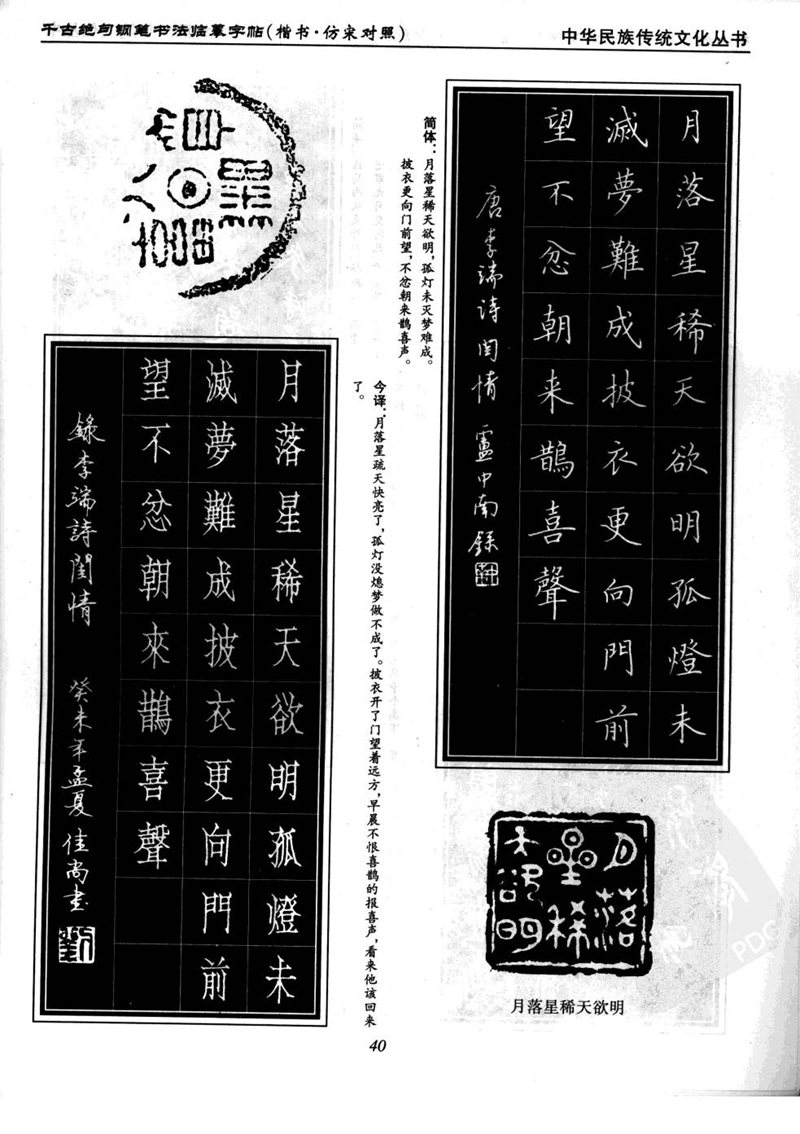 千古绝句钢笔书法临摹字帖(楷书·仿宋对照)
中华民族传统文化丛书
月落星稀天欲明孤燈未
滅夢難成披衣更向門前
望不忿朝来鵲喜聲
唐李端詩閨情 盧中南録
简体:月落星稀天欲明,孤灯未灭梦难成。
披衣更向门前望,不忿朝来鹊喜声。
今译:月落星疏天快亮了,孤灯没熄梦做不成了。披衣开了门望着远方,早晨不恨喜鹊的报喜声,看来他该回来
了。
月落星稀天欲明孤燈未
滅夢難成披衣更向門前
望不忿朝來鵲喜聲
録李端詩閨情 癸未年孟夏佳尚書
月落
星稀
天欲明
月落星稀天欲明
40